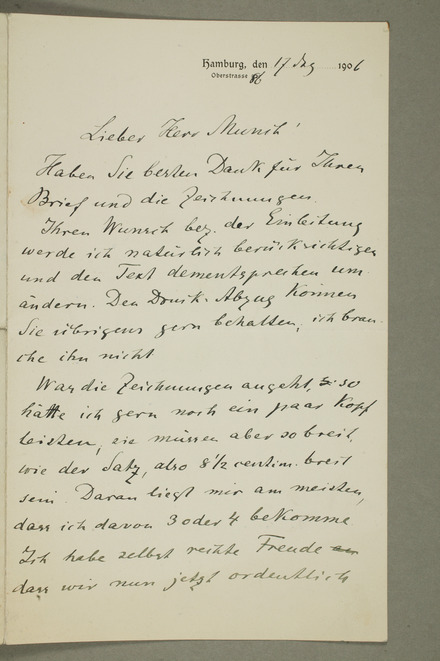 Hamburg, den 17 Dez 1906
Oberstrasse 86
Lieber Herr Munch!
Haben Sie besten Dank für Ihren
Brief und die Zeichnungen.
Ihren Wunsch bez. der Einleitung
werde ich natürlich berücksichtigen
und den Text dementsprechen um-
ändern. Den Druck-Abzug können
Sie übrigens gern behalten, ich brau-
che ihn nicht
Was die Zeichnungen angeht, so
hätte ich gern noch ein paar Kopf
leisten, sie müssen aber so breit,
wie der Satz, also 8 1/2 centim. breit
sein. Daran liegt mir am meisten,
dass ich davon 3 oder 4 bekomme.
Ich habe selbst rechte Freude
dass wir nun jetzt ordentlich